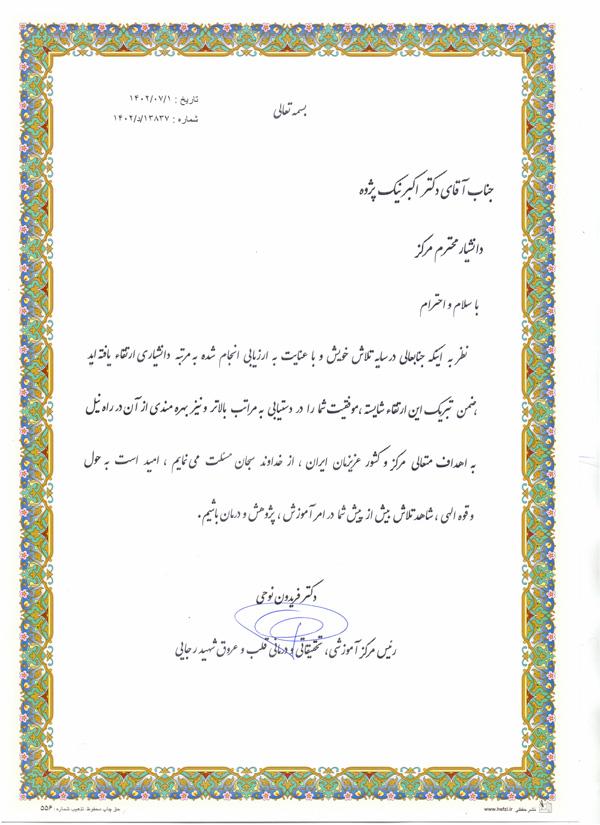 بسمه تعالی
تاریخ : ۱۴۰۲/۰۷/۱
شماره : ۱۳۸۳۷/د/۱۴۰۲
جناب آقای دکتر اکبر نیک پژوه
دانشیار محترم مرکز
با سلام و احترام
نظر به اینکه جنابعالی در سایه تلاش خویش و با عنایت به ارزیابی انجام شده به مرتبه دانشیاری ارتقاء یافته اید
،ضمن تبریک این ارتقاء شایسته ،موفقیت شما را در دستیابی به مراتب بالاتر و نیز بهره مندی از آن در راه نیل
به اهداف متعالی مرکز و کشور عزیزمان ایران ، از خداوند سبحان مسئلت می نمایم ، امید است به حول
و قوه الهی ، شاهد تلاش بیش از پیش شما در امر آموزش ، پژوهش و درمان باشیم.
دکتر فریدون نوحی
رئیس مرکز آموزشی، تحقیقاتی و درمانی قلب و عروق شهید رجایی
نشر حفظی www.hefzi.ir
حق چاپ محفوظ. تذهیب شماره: ۵۵۶